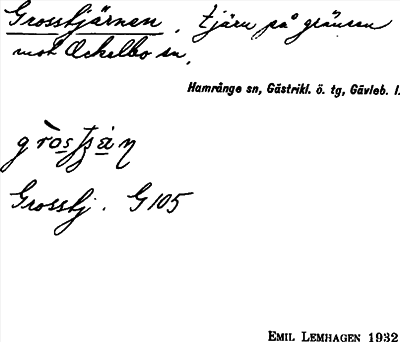 Grosstjärnen, tjärn på gränsen
mot Ockelbo sn.
Hamrånge sn, Gästrikl. ö. tg, Gävleb. l.
Grosstj. G 105
EMIL LEMHAGEN 1932